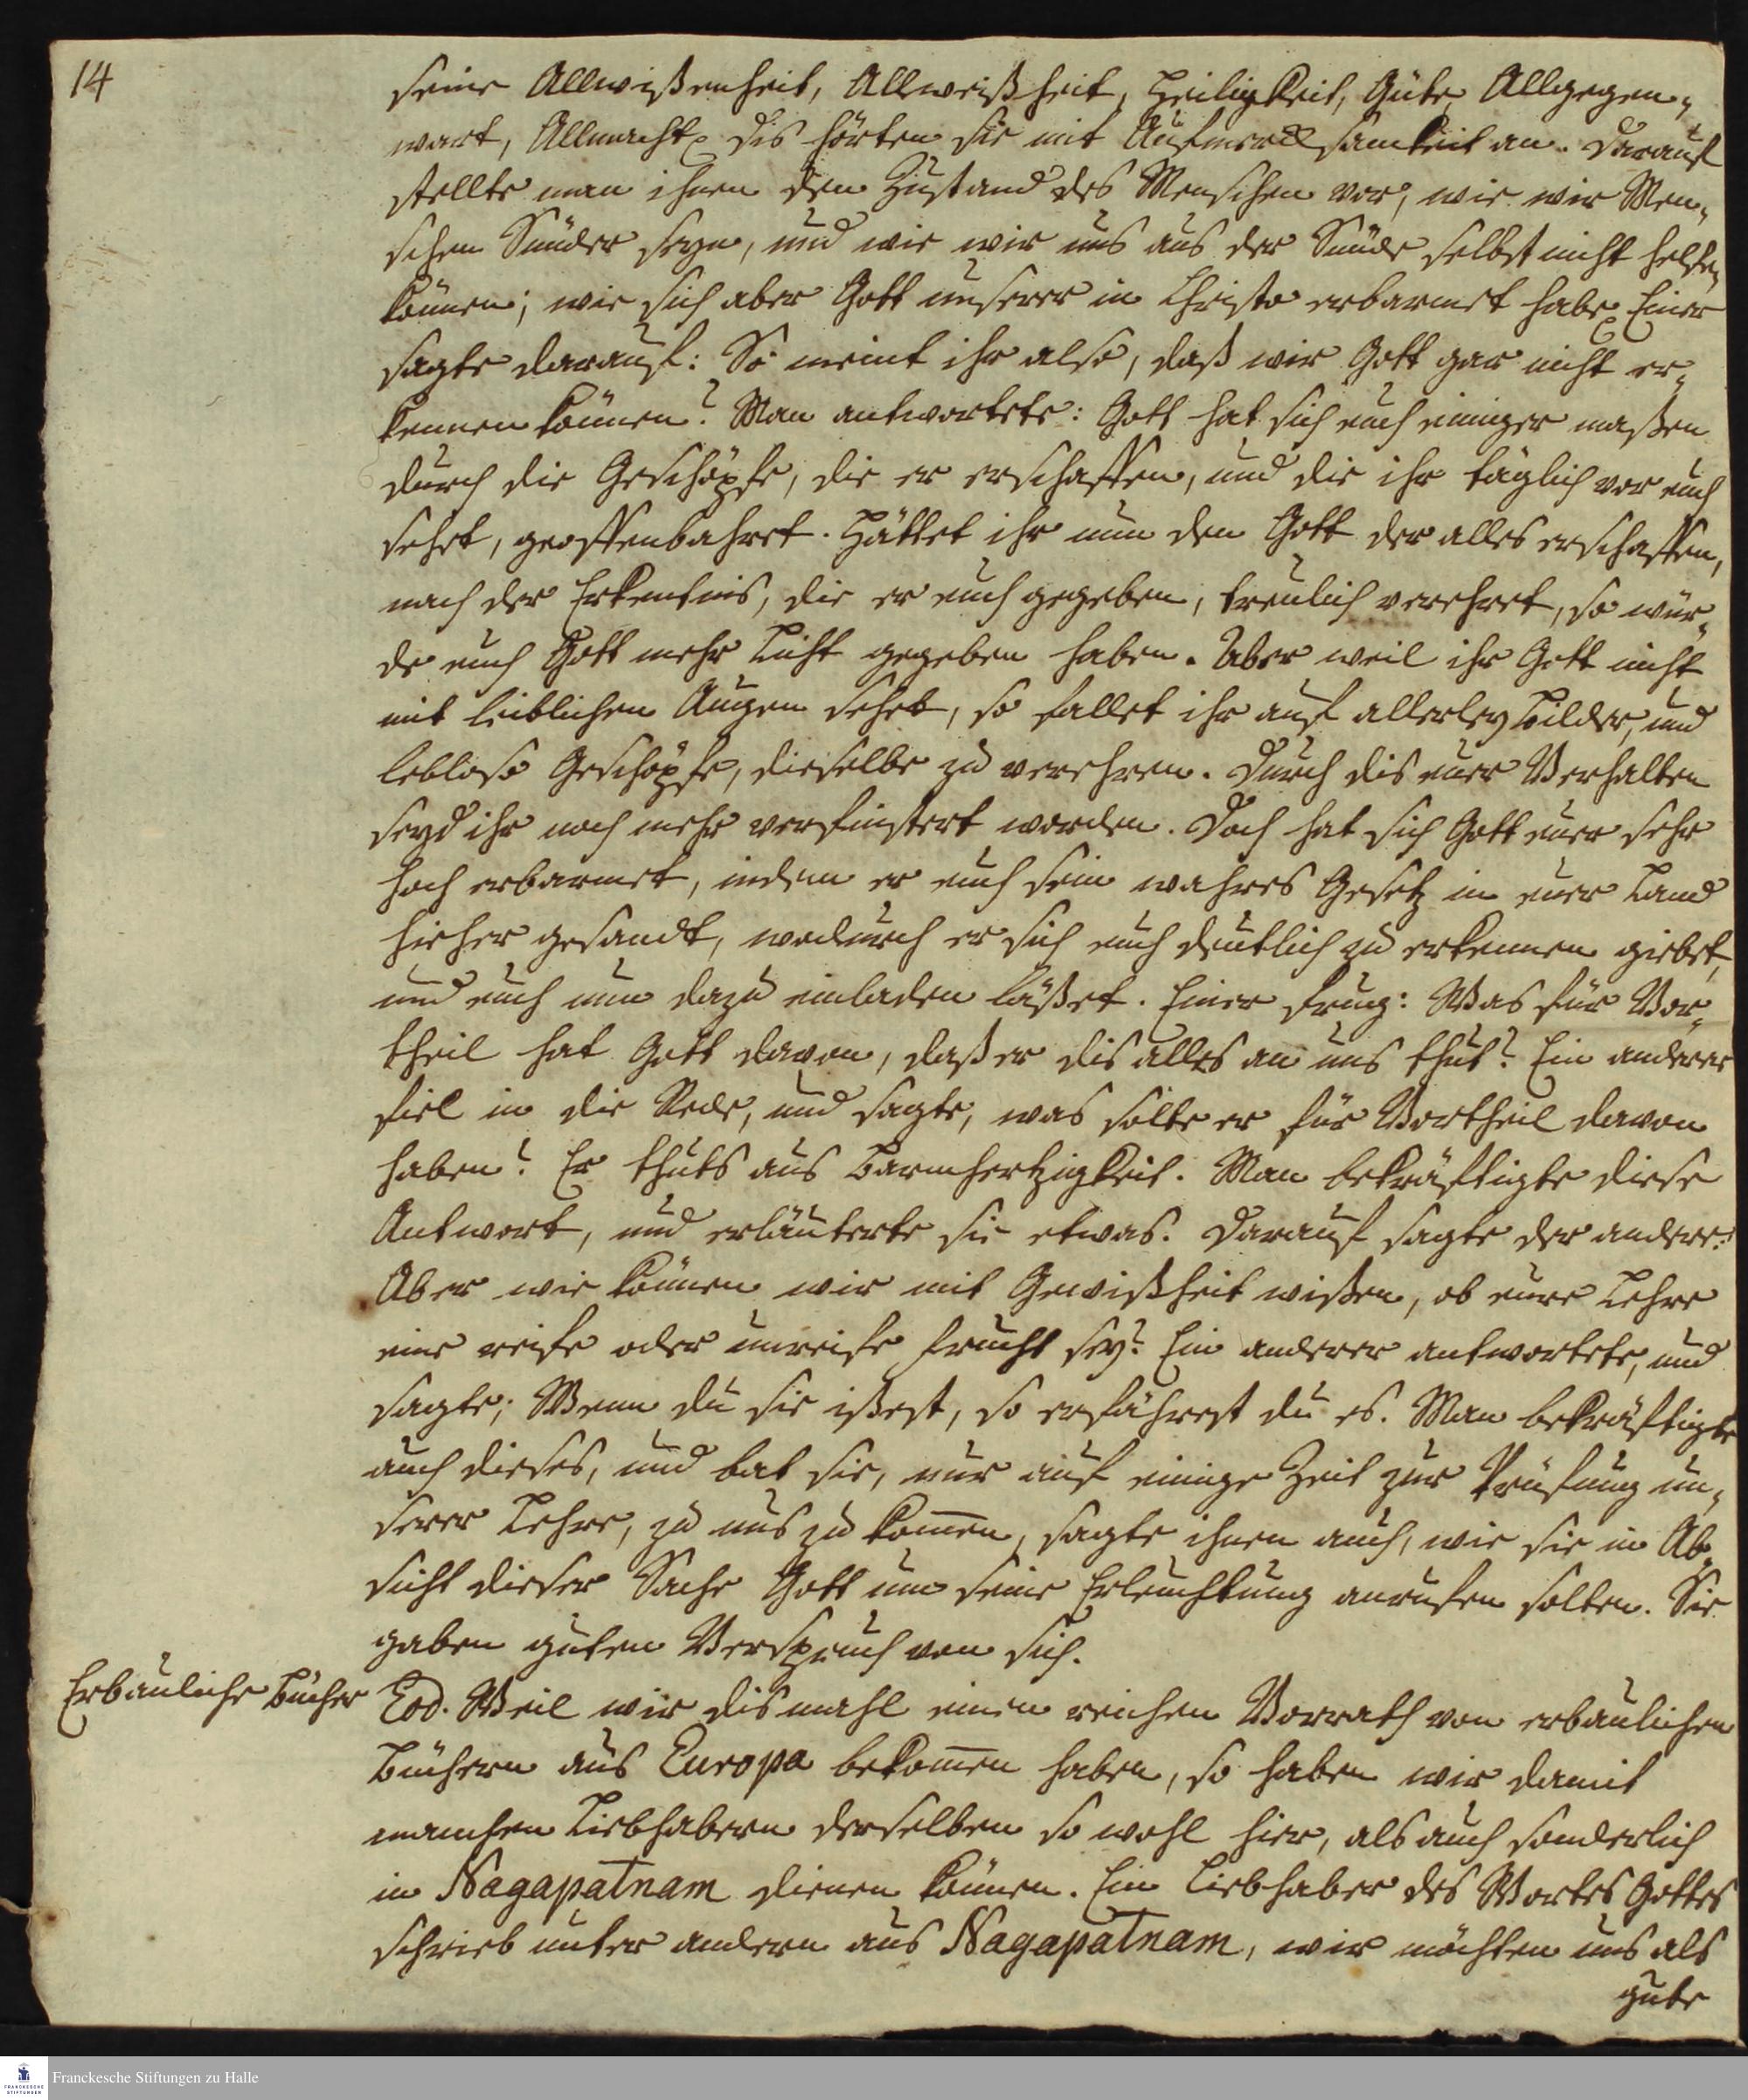 14
seine Allwißenheit, Allweißheit, Heiligkeit, Güte, Allgegen„
wart, Allmacht. Dis hörten sie mit Aufmercksamkeit an. Darauf
stellte man ihnen den Zustand des Menschen vor, wie wir Men„
schen Sünder seyn, und wie wir uns aus der Sünde selbst nicht helfen
können; wie sich aber Gott unserer in Christo erbarmet habe. Einer
sagte darauf: So meint ihr also, daß wir Gott gar nicht er„
kennen können? Man antwortete: Gott hat sich euch einiger maßen
durch die Geschöpfe, die er erschaffen, und die ihr täglich vor euch
sehet, geoffenbahret. Hättet ihr nun den Gott der alles erschaffen,
nach der Erkentnis, die er euch gegeben, treulich verehret, so wür„
de euch Gott mehr Licht gegeben haben. Aber weil ihr Gott nicht
mit leiblichen Augen sehet, so fallet ihr auf allerley Bilder, und
leblose Geschöpfe, dieselbe zu verehren. Durch dis euer Verhalten
seyd ihr noch mehr verfinstert worden. Doch hat sich Gott euer sehr
hoch erbarmet, indem er euch sein wahres Gesetz in euer Land
hieher gesandt, wodurch er sich euch deutlich zu erkennen giebet,
und euch nun dazu einladen läßet. Einer frug: Was für Vor„
theil hat Gott davon, daß er dis alles an uns thut? Ein anderer
fiel in die Rede, und sagte, was solte er für Vortheil davon
haben? Er thuts aus Barmhertzigkeit. Man bekräftigte diese
Antwort, und erläuterte sie etwas. Darauf sagte der andere:
Aber wie können wir mit Gewißheit wißen, ob eure Lehre
eine reife oder unreife Frucht sey? Ein anderer antwortete, und
sagte; Wenn du sie ißest, so erfährest du es. Man bekräftigte
auch dieses, und bat sie, nur auf einige Zeit zur Prüfung un„
serer Lehre, zu uns zu kom̄en, sagte ihnen auch, wie sie in Ab„
sicht dieser Sache Gott um seine Erleuchtung anrufen solten. Sie
gaben guten Verspruch von sich.
Erbauliche Bücher
Eod. Weil wir dismahl einen reichen Vorrath von erbaulichen
Büchern aus Europa bekom̄en haben, so haben wir damit
manchen Liebhabern derselben so wohl hier, als auch sonderlich
in Nagapatnam dienen können. Ein Liebhaber des Wortes Gottes
schrieb unter andern aus Nagapatnam, wir möchten uns als
gute
Franckesche Stiftungen zu Halle
FRANCKESCHE
STIFTUNGEN